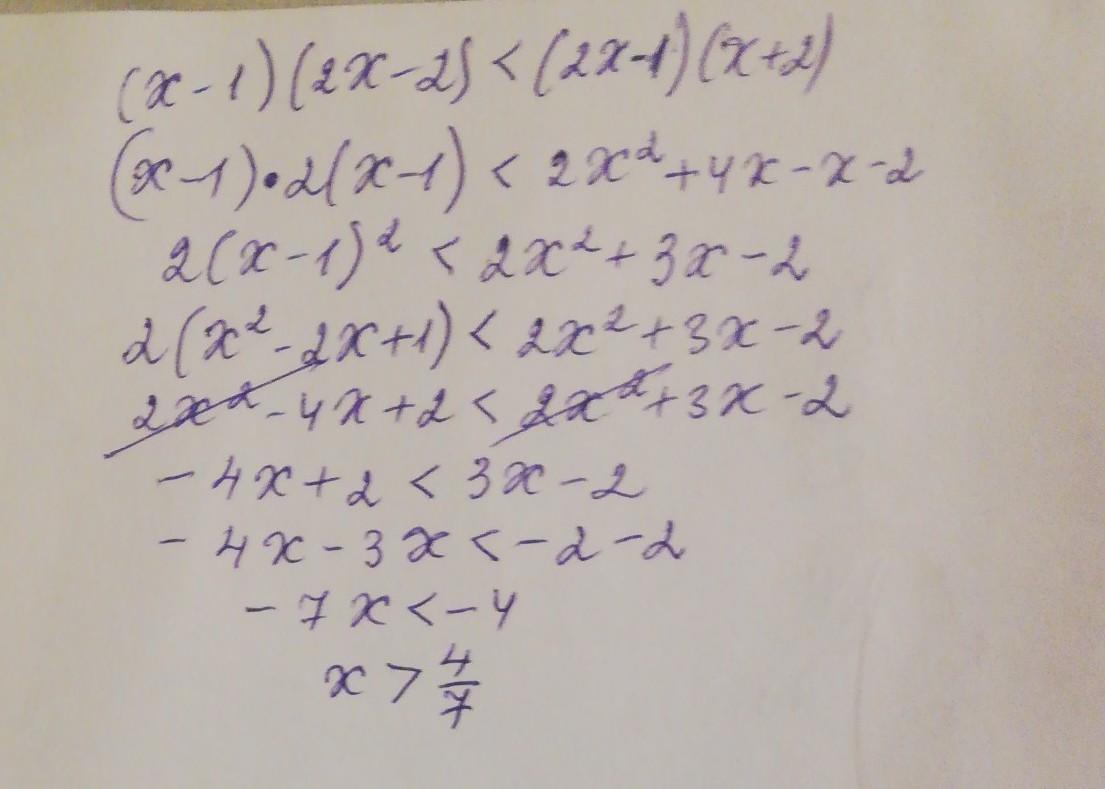 (x-1)(2x-2) < (2x-1)(x+2)
(x-1)•2(x-1) < 2x²+4x-x-2
2(x-1)² < 2x²+3x-2
2(x²-2x+1) < 2x²+3x-2
2x²-4x+2 < 2x²+3x-2
-4x+2 < 3x-2
-4x-3x < -2-2
-7x < -4
x > 4/7